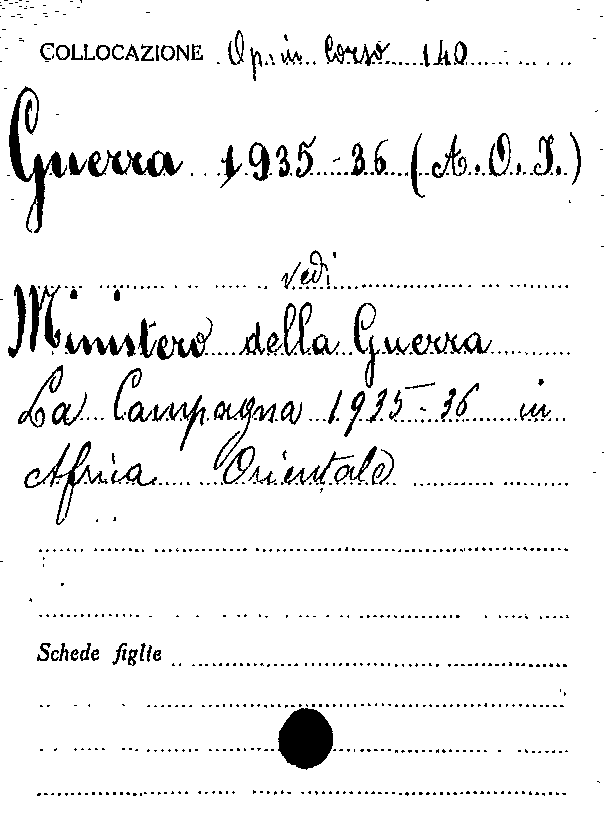 COLLOCAZIONE Op. in Corso 140
Guerra 1935-36 (A.O.I.)
vedi
Ministero della Guerra
La Campagna 1935-36 in
Africa Orientale
Schede figlie